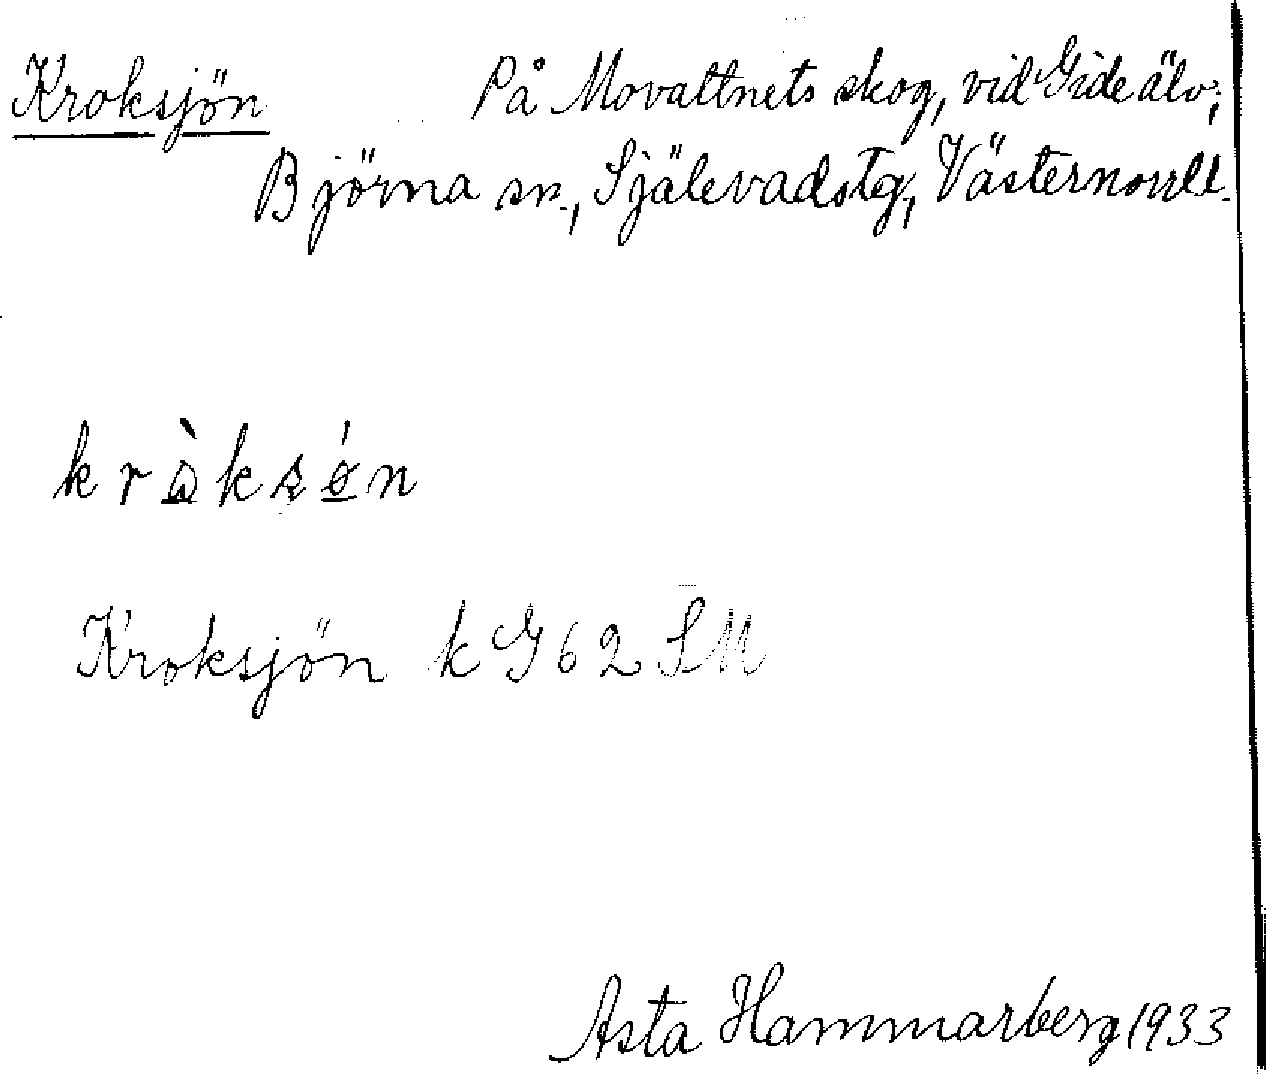 Kroksjön På Movattnets skog, vid Gideälv;
Björna sn., Själevadstg, Västernorrl.
kràksǿn
Kroksjön k G 62 SM
Asta Hammarberg 1933